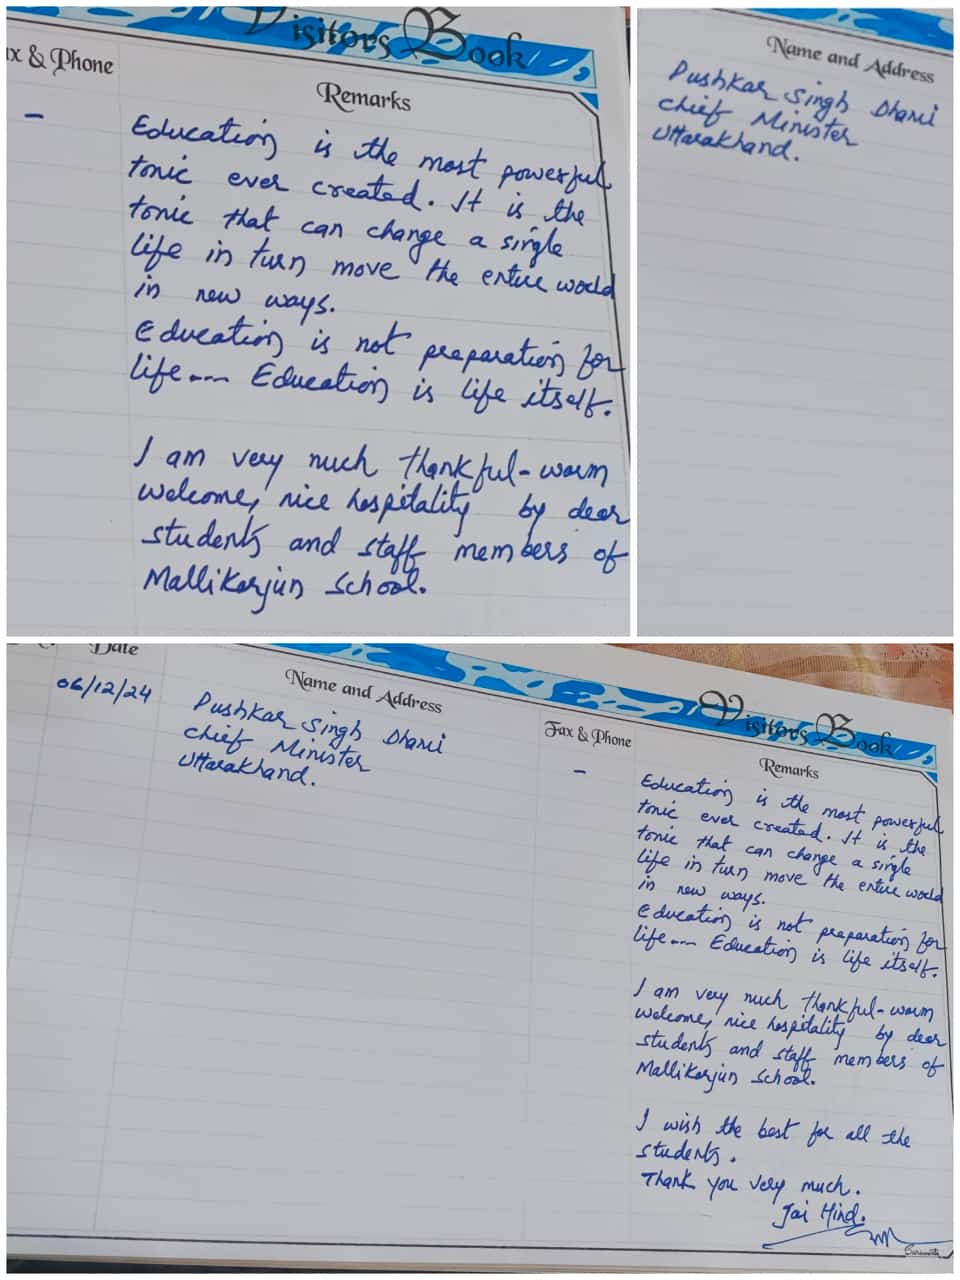 Visitors Book
ax & Phone
Remarks
-
Education is the most powerful
tonic ever created. It is the
tonic that can change a single
life in turn move the entire world
in new ways.
Education is not preparation for
life--- Education is life itself.
I am very much thankful-warm
welcome, nice hospitality by dear
students and staff members of
Mallikarjun School.
Name and Address
Pushkar Singh Dhami
Chief Minister
Uttarakhand.
Date
Name and Address
Fax & Phone
Visitors Book
Remarks
06/12/24
Pushkar Singh Dhami
Chief Minister
Uttarakhand.
-
Education is the most powerful
tonic ever created. It is the
tonic that can change a single
life in turn move the entire world
in new ways.
Education is not preparation for
life--- Education is life itself.
I am very much thankful-warm
welcome, nice hospitality by dear
students and staff members of
Mallikarjun School.
I wish the best for all the
students.
Thank you very much.
Jai Hind.